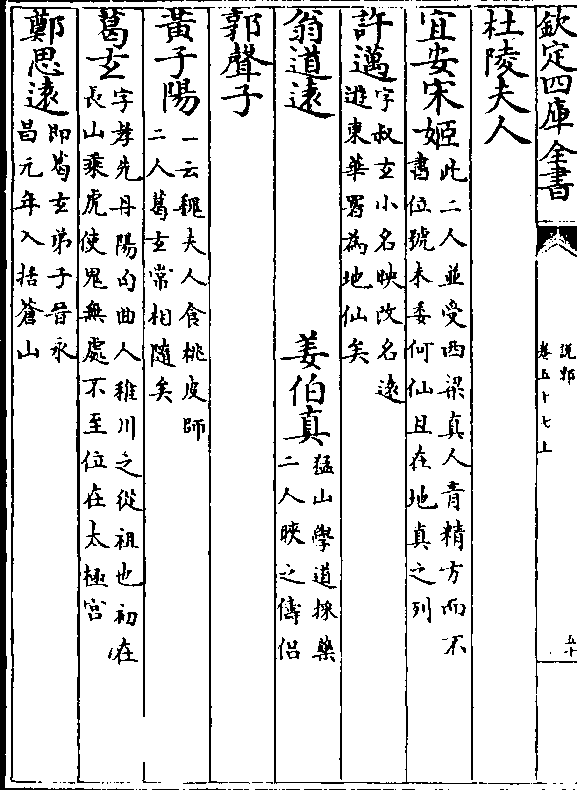 欽定四庫全書
説郛
卷五十七上
五十
杜陵夫人
宜安宋姬此二人並受西梁真人青精方而不
書位號未委何仙且在地真之列
許邁字叔玄小名映改名遠
遊東華署為地仙矣
翁道遠
姜伯真猛山學道採藥
二人映之儔侶
郭聲子
黃子陽一云魏夫人食桃皮師
二人葛玄常相隨矣
葛玄字孝先丹陽句曲人稚川之從祖也初在
長山乘虎使鬼無處不至位在太極宮
鄭思遠即葛玄弟子晉永
昌元年入括蒼山